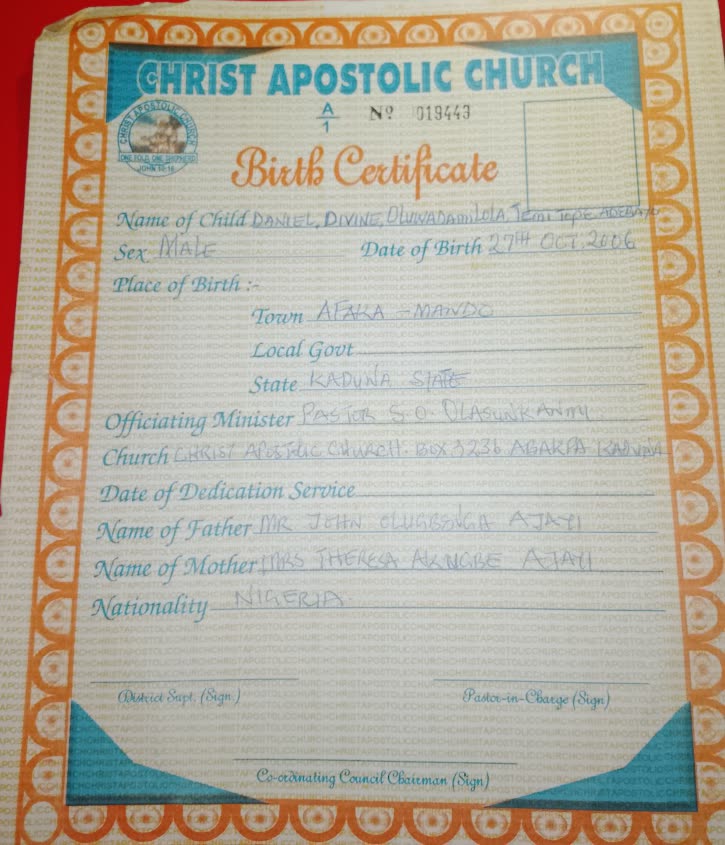 CHRIST APOSTOLIC CHURCH
A/1 Nº 019443
CHRIST APOSTOLIC CHURCH
ONE FOLD, ONE SHEPHERD
JOHN 10:16
Birth Certificate
Name of Child DANIEL, DIVINE, OLUWADAMILOLA, TEMITOPE, ADEBAYO
Sex MALE Date of Birth 27TH OCT, 2006
Place of Birth :-
Town AFAKA - MANDO
Local Govt
State KADUNA STATE
Officiating Minister PASTOR S. O. OLASUNKANMI
Church CHRIST APOSTOLIC CHURCH. BOX 3236 ABAKPA KADUNA
Date of Dedication Service
Name of Father MR JOHN OLUGBENGA AJAYI
Name of Mother MRS THERESA AJAYI
Nationality NIGERIA.
District Supt. (Sign.) Pastor-in-Charge (Sign)
Co-ordinating Council Chairman (Sign)